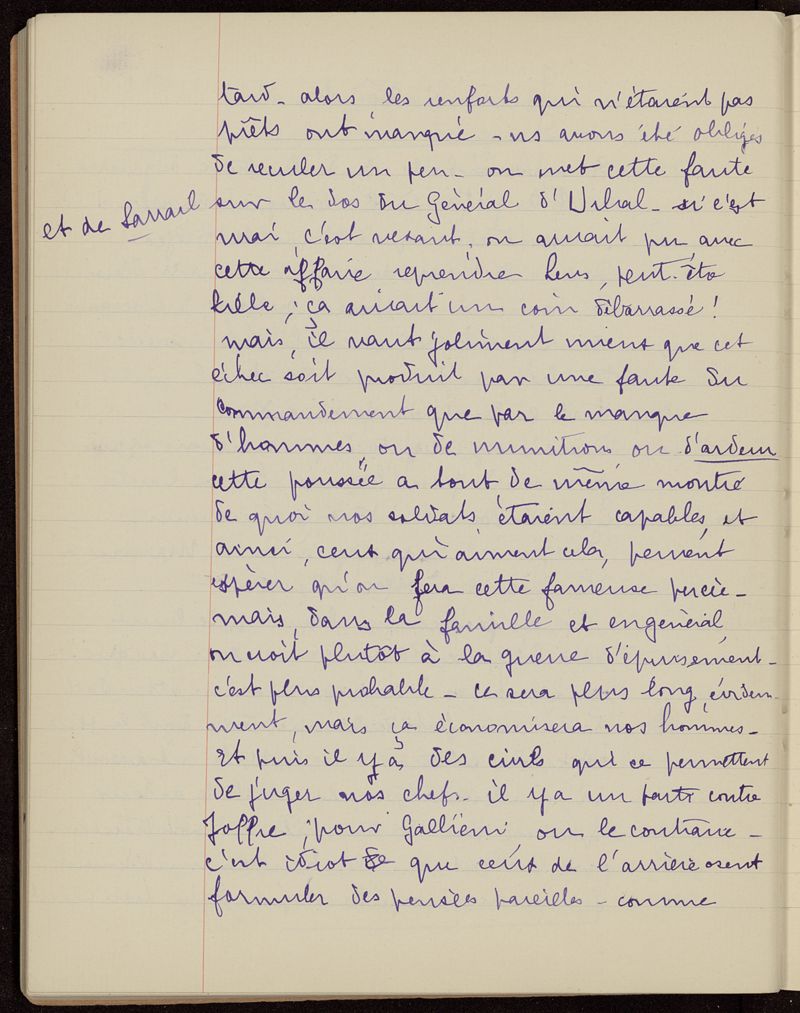 tard - alors les renforts qui n'étaient pas
prêts ont manqué - ns avons été obligés
de reculer un peu - on met cette faute
sur le dos du Général d'Urbal - si c'est
et de Sarrail
vrai, c'est vexant, on aurait pu, avec
cette affaire reprendre Lens, peut-être
Lille, ça aurait un coin débarrassé !
mais, il vaut joliment mieux que cet
échec soit produit par une faute du
commandement que par le manque
d'hommes, ou de munitions ou d'ardeur
cette poussée a tout de même montré
de quoi nos soldats étaient capables, et
ainsi, ceux qui aiment cela, peuvent
espérer qu'on fera cette fameuse percée -
mais, dans la famille et en général,
on croit plutôt à la guerre d'épuisement -
c'est plus probable - ce sera plus long, évidem-
ment, mais ça économisera nos hommes -
Et puis il y a des civils qui se permettent
de juger nos chefs - il y a un parti contre
Joffre, pour Galliéni, ou le contraire -
c'est idiot de que ceux de l'arrière osent
formuler des pensées pareilles - comme